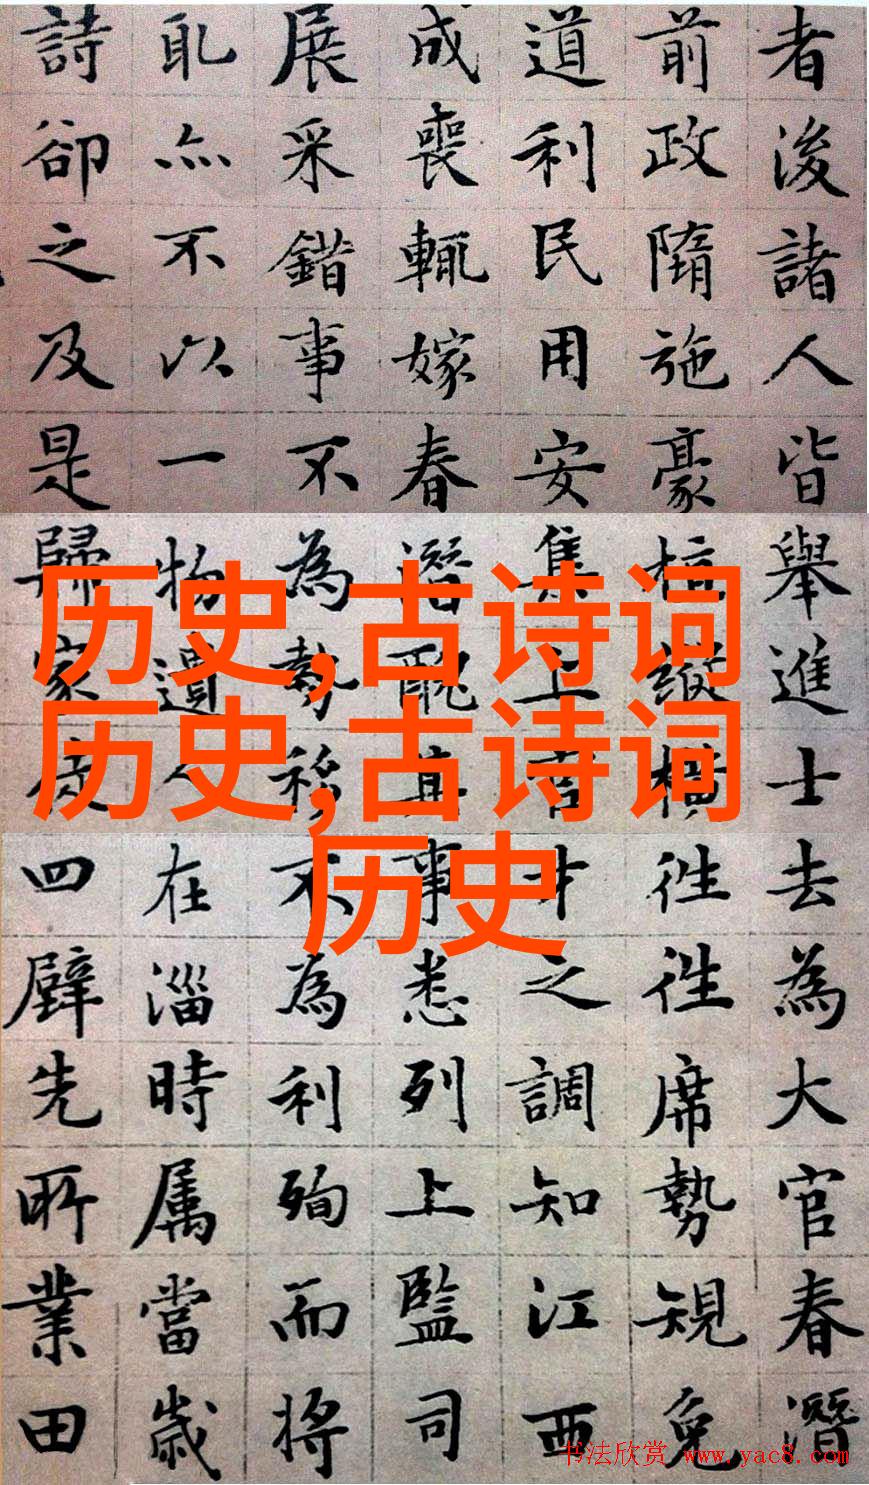 者後諸人皆舉進士去為大官春潛
前政隋施豪縱橫往往席勢規免
道利民用安集上官才之調知江西
成喪輒嫁春潛醜其事悉列上監司
展采錯事不為勢移不為利殉而將
耴亦不以一物遺人在淄時属當歲
詩卻之及是歸家徒四壁先所業田
历史,古诗词
历史,古诗词
历史
书法欣赏 www.yac8.com